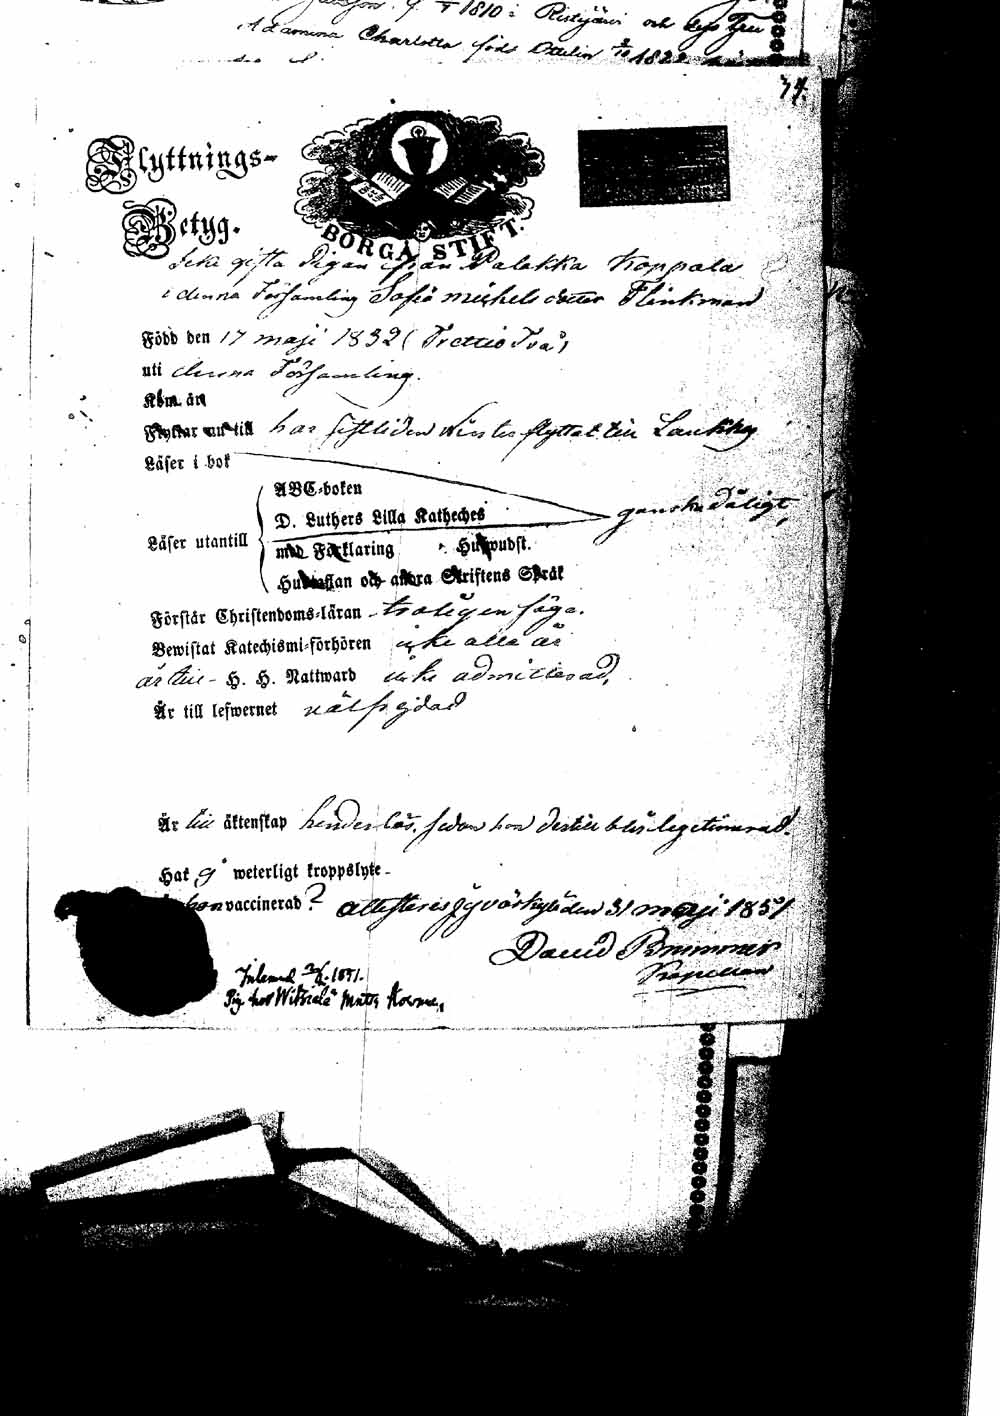 1810 i Ristijärvi och dess Hru
Adamina Charlotta född Ottelin 2/10 1822
74.
Flyttnings-
Betyg.
BORGÅ STIFT.
Icke gifta Pigan från Palokka Koppala
i denna Församling Sofia Michelsdotter Flinkman
Född den 17 maji 1832 (Trettio Två)
uti denna Församling.
Kom år
Flyttar nu till har sistliden Winter flyttat till Laukka
Läser i bok
ABC-boken
D. Luthers Lilla Katheches ganska dåligt,
Läser utantill
med Förklaring Huswudst.
Hustaflan och andra Skriftens Språk
Förstår Christendoms-läran troligen föga.
Bewistat Katechismi-förhören icke alla år
är till H. H. Nattward icke admitterad,
Är till lefwernet wälfrejdad
Är till äktenskap hinderlös, sedan hon dertill blir legitimerad.
Har ej weterligt kroppslyte
hon vaccinerad? attesteras Jyväskylä den 31 maji 1851
David Brummer
Kapellan
Inlemnad 1851.
Pig hos Witsiala Matts